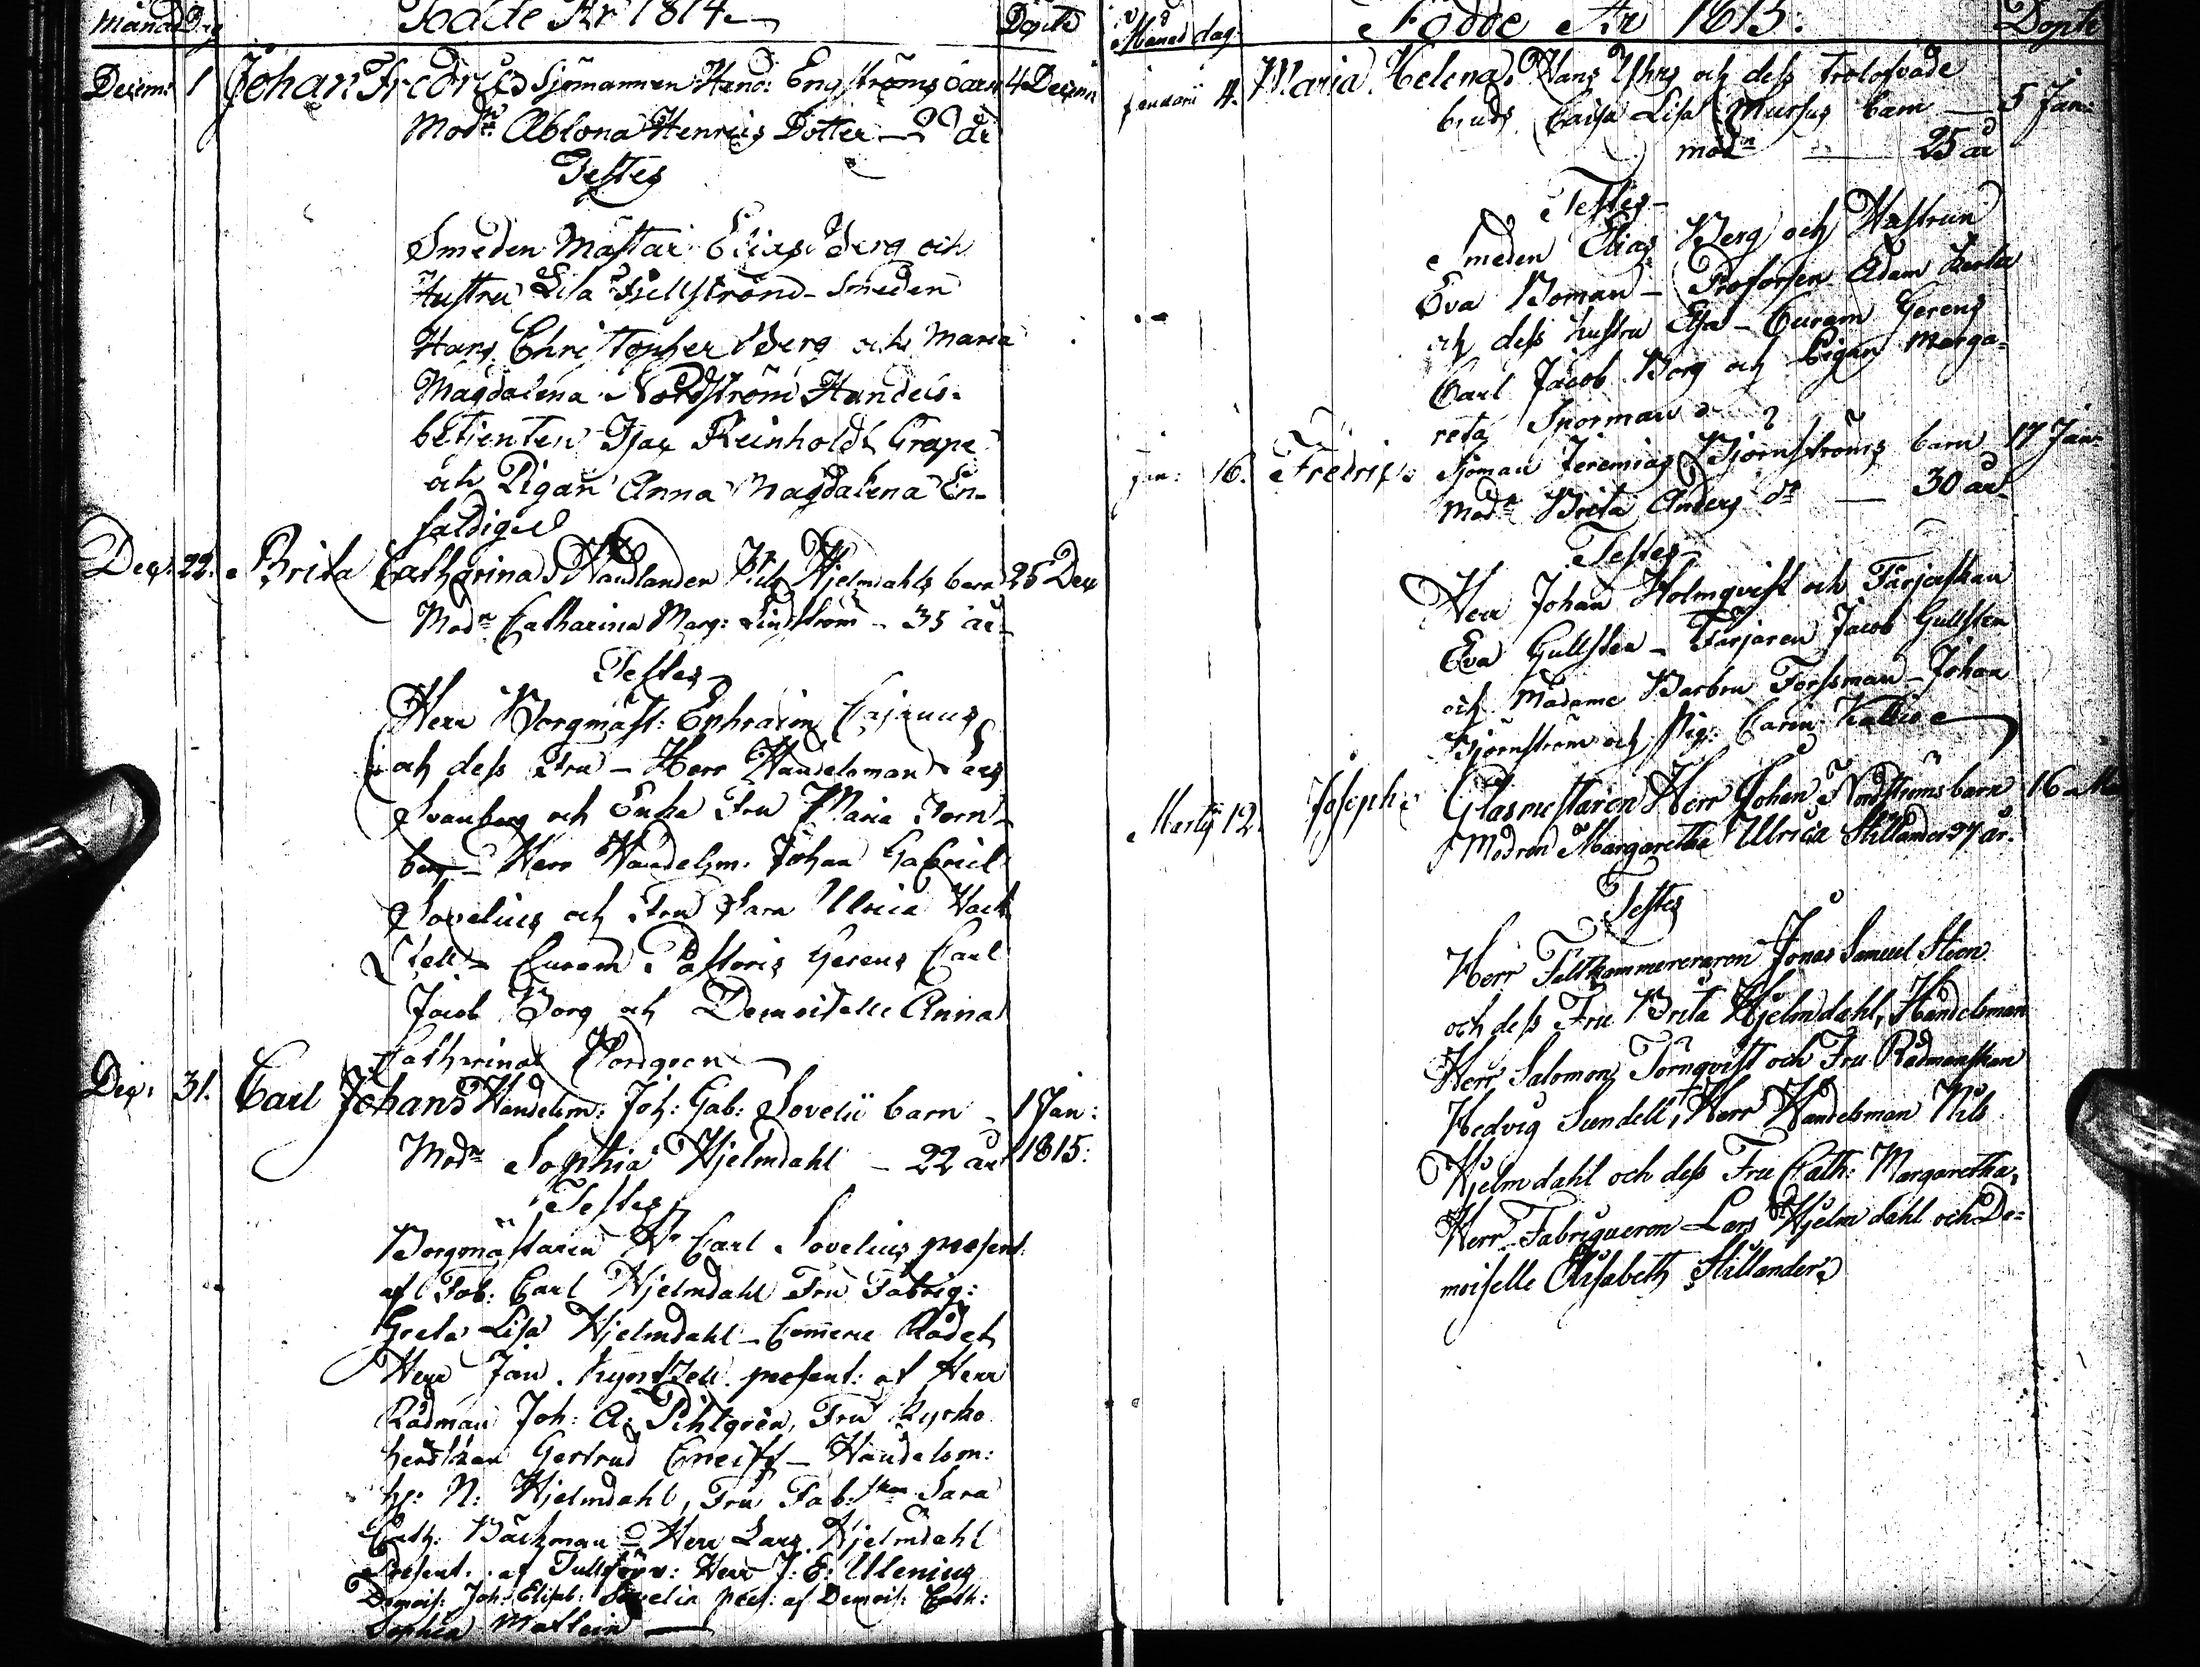 Månad Dag Födde År 1814 Döpte
Decem: 1 Johan Fredric Sjömannen Hend: Engströms barn 4 Decem
Modn Ablona Henrics Dotter
Testes
Smeden Mästar Elias Berg och
Hustru Lisa Fiellström - Smeden
Hans Christopher Berg och Maria
Magdalena Nordström Handels-
betjenten Isac Reinholdt Grape
och Pigan Anna Magdalena En-
faldiged
Dec. 22. Brita Catharina Handlanden Nils Hjelmdahls barn 25 Dec
Modn Catharina Marg: Lindström - 35 år
Testes
Herr Borgmäst: Ephraim Cajanus
och dess Fru - Herr Handelsman Lars
Svanberg och Enka Fru Maria Torn-
berg - Herr Handelsm. Johan Gabriel
Sovelius och Fru Sara Ulrica
Curam Pastoris Gerens Carl
Jacob Borg och Demoiselle Anna
Catharina Nordgren
Dec. 31. Carl Johan Handelsm: Joh: Gab: Sovelii barn - 1 Jan:
Modn Sophia Hjelmdahl - 22 år 1815:
Testes
Borgmästaren Hr Carl Sovelius present:
af Fab: Carl Hjelmdahl Fru Fabriq:
Greta Lisa Hjelmdahl - Commerce Rådet
Herr Jan. present: af Herr
Rådman Joh: A: Pihlgrén, Fru Kyrko
herdskan Gertrud Cneiff - Handelsm:
Hr: N: Hjelmdahl, Fru Fab:skan Sara
Cath: Bäckman - Herr Lars Hjelmdahl
Present. af Tullförv: Herr J: E: Ulenius
Demois: Joh: Elisab: Sovelia pres: af Demois: Cath:
Sophia Matlein
Månad dag. Födde År 1815. Döpte
Januarii 4. Maria Helena, Hans Uhrs och dess trolofvade
bruds Caisa Lisa Mursus barn 5 Jan:
modn 25 år
Testes
Smeden Elias Berg och Hustrun
Eva Boman - Profossen Adam
och dess hustru Elsa - Curam Gerens
Carl Jacob Borg och Pigan Marga-
reta Sporman
Jan: 16. Fredric Sjöman Jeremias Björnströms barn 17 Jan:
Modn Brita Anders dr 30 år
Testes
Herr Johan Holmqvist och Färjarskan
Eva Gullsten - Färjaren Jacob Gullsten
och Madame Barbru Forssman - Johan
Björnström och Pig: Carin Kallio
Martij 12. Joseph Glasmestaren Herr Johan Nordströms barn 16
Modren Margaretha Ulrica Stillander 37 år.
Testes
Herr Feltkammereraren Jonas Samuel Steen
och dess Fru Brita Hjelmdahl, Handelsman
Herr Salomon Törnqvist och Fru Rådmanskan
Hedvig Sundell, Herr Handelsman Nils
Hjelmdahl och dess Fru Cath: Margaretha,
Herr Fabriqueren Lars Hjelmdahl och De-
moiselle Elisabeth Stillander